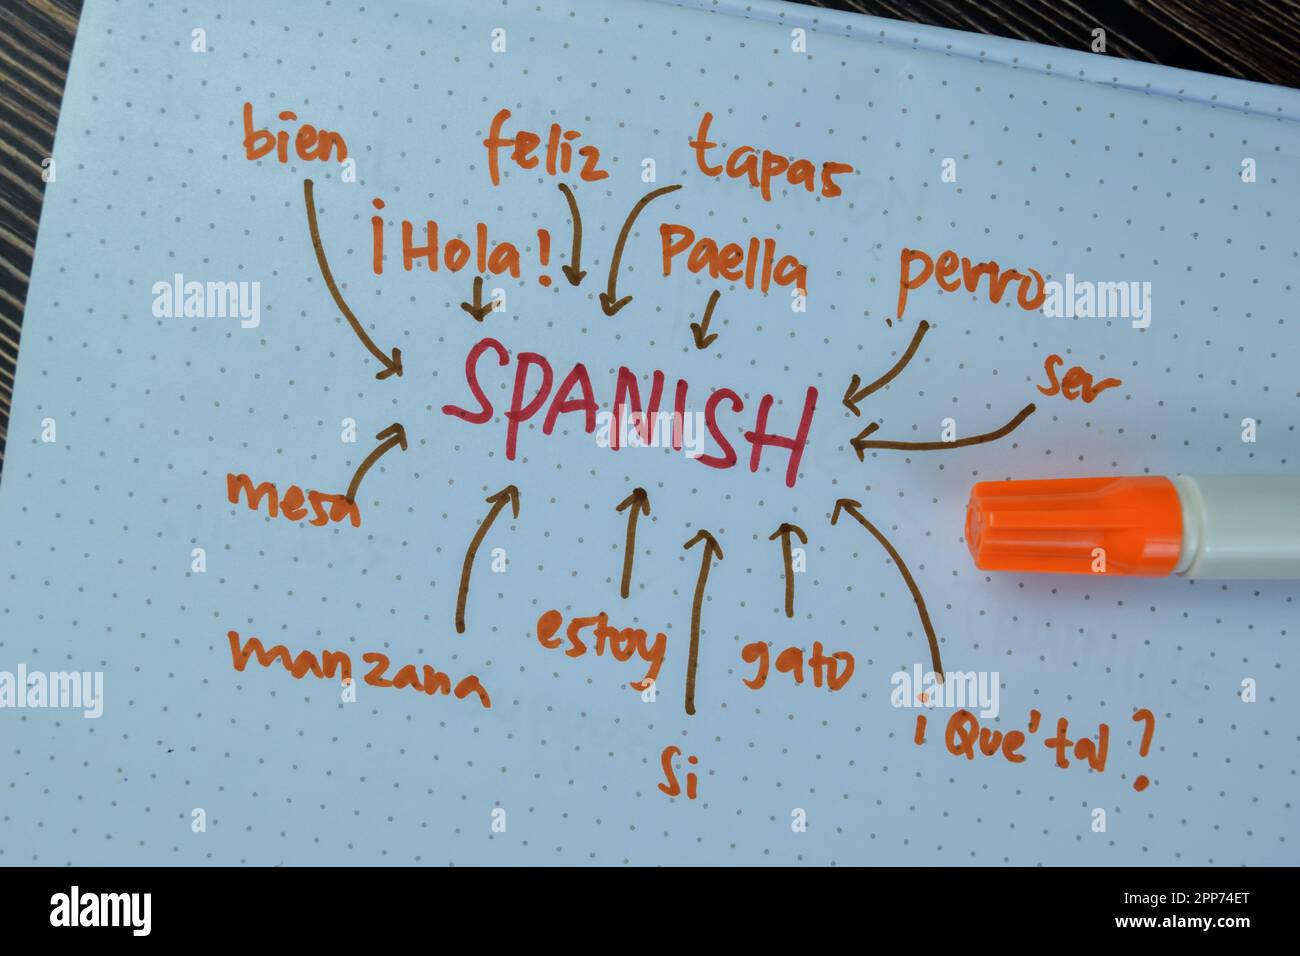 bien
feliz
tapas
¡Hola!
Paella
perro
ser
SPANISH
mesa
manzana
estoy
gato
Si
¡Que'tal?
alamy
alamy
Image ID: 2PP74ET
www.alamy.com